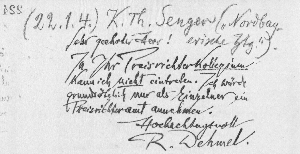 DSS
(22.1.4.) K. Th. Senger („Nordbay-
Sehr geehrter Herr! erische Ztg.").
In Ihr Preisrichterkollegium
kann ich nicht eintreten. Ich würde
grundsätzlich nur als Einzelner ein
Preisrichteramt annehmen.
Hochachtungsvoll
R. Dehmel.